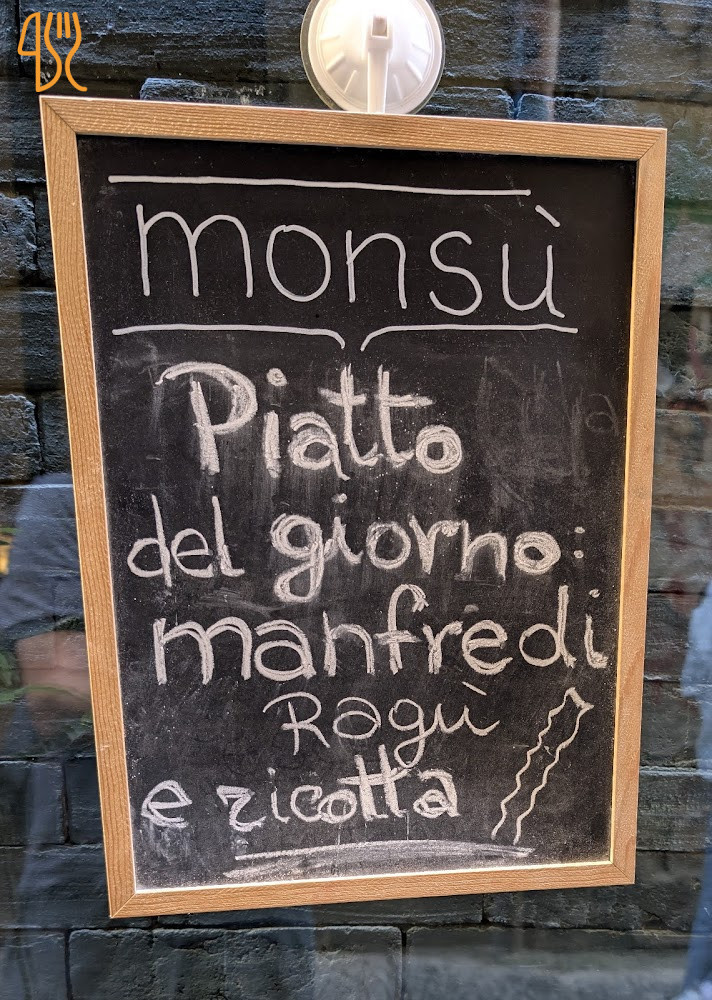 monsù
Piatto
del giorno:
manfredi
Ragù
e ricotta